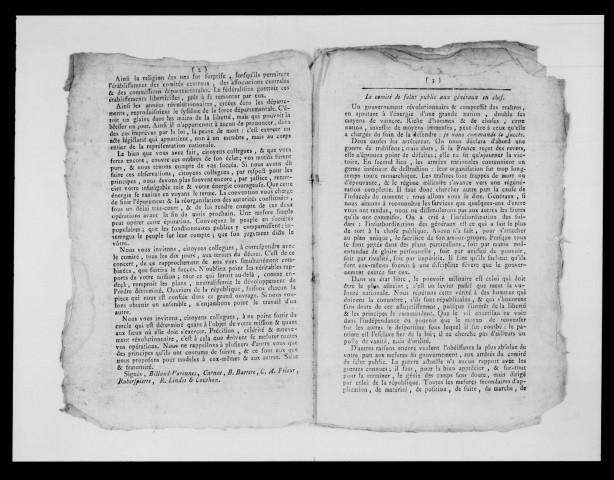 ( 2 )
Ainsi la religion des uns fut surprise, lorsqu'ils permirent
l'établissement des comités centraux, des associations centrales
& des commissions départementales. Le fédéralisme
établissemens liberticides, prêt à se remontrer par eux.
Ainsi les armées révolutionnaires, créées dans les départe-
mens, reproduisirent le système de la force départementale. C'é-
toit un glaive dans les mains de la liberté, mais qui pouvoit la
blesser un jour. Ainsi il n'appartenoit à aucun de prononcer, dans
des cas imprévus par la loi, la peine de mort : c'est exercer un
acte législatif qui appartient, non à un membre, mais au corps
entier de la représentation nationale.
Le bien que vous avez fait, citoyens collegues, & que vous
ferez encore, couvre ces ombres de son éclat ; vos motifs furent
purs, & nous tenons compte de vos succès. Si nous avons dû
faire ces observations, citoyens collegues, par respect pour les
principes, nous devons plus souvent encore, par justice, remer-
cier votre infatigable zele & votre énergie courageuse. Que cette
énergie se ranime en voyant le terme. La convention vous charge
de finir l'épurement & la réorganisation des autorités constituées,
sous un délai très-court, & de lui rendre compte de ces deux
opérations avant la fin du mois prochain. Une mesure simple
peut opérer cette épuration. Convoquez le peuple en sociétés
populaires ; que les fonctionnaires publics y comparoissent ; in-
terrogez le peuple sur leur compte ; que son jugement dicte le
vôtre.
Nous vous invitons, citoyens collegues, à correspondre avec
le comité, tous les dix jours, aux termes du décret. C'est de ce
concert, de ce rapprochement de nos vues simultanément com-
binées, que sortira le succès. N'oubliez point les véritables rap-
ports de votre mission ; tout ce qui seroit au-delà, comme en-
deçà, romproit les plans, neutraliseroit le développement de
l'ordre déterminé. Ouvriers de la république, faisons chacun la
piece qui nous est confiée dans ce grand ouvrage. Si nous vou-
lons obtenir un ensemble, n'empiétons point le travail d'un
autre.
Nous vous invitons, citoyens collegues, à ne point sortir du
cercle qui est déterminé quant à l'objet de votre mission & quant
aux lieux où elle doit s'exercer. Précision, célérité & mouve-
ment révolutionnaire, c'est à cela que doivent se mesurer toutes
vos opérations. Nous ne rappellons à plusieurs d'entre vous que
des principes qu'ils ont coutume de suivre, & ce sont eux que
nous proposons pour modeles à eux-mêmes & aux autres. Salut
& fraternité.
Signés, Billaud-Varennes, Carnot, B. Barrere, C. A. Prieur,
Robespierre, R. Lindet & Couthon.
( 3 )
Le comité de salut public aux généraux en chef.
Un gouvernement révolutionnaire & compressif des traîtres,
en ajoutant à l'énergie d'une grande nation, double ses
moyens de vaincre. Riche d'hommes & de choses, cette
nation, investie de moyens immenses, peut dire à ceux qu'elle
a chargés du soin de la défendre : je vous commande le succès.
Deux causes les arrêterent. On nous déclara d'abord une
guerre de trahisons ; mais alors, si la France reçut des revers,
elle n'éprouva point de défaites ; elle ne fit qu'ajourner la vic-
toire. En second lieu, les armées naissantes contenoient un
germe intérieur de destruction : leur organisation fut trop long-
temps toute monarchique. Les traîtres sont frappés de mort ou
d'épouvante, & le régime militaire s'avance vers une régéné-
ration complette. Il faut donc chercher autre part la cause de
l'insuccès du moment : nous allons vous le dire. Généraux, si
nous aimons à reconnoître les services que quelques-uns d'entre
vous ont rendus, nous ne dissimulerons pas aux autres les fautes
qu'ils ont commises. On a crié à l'insubordination des sol-
dats ; l'insubordination des généraux est ce qui a fait le plus
de tort à la chose publique. Aucun n'a fait, pour s'attacher
au plan unique, le sacrifice de son amour-propre. Presque tous
se sont jettés dans des plans particuliers, soit par amour mal-
entendu de gloire personnelle, soit par avidité de pouvoir,
soit par rivalité, soit par impéritie. Il faut qu'ils sachent qu'ils
sont eux-mêmes soumis à une discipline sévere que le gouver-
nement exerce sur eux.
Dans un état libre, le pouvoir militaire est celui qui doit
être le plus astreint ; c'est un levier passif que meut la vo-
lonté nationale. Nous réitérons cette vérité à des hommes qui
doivent la connoître, s'ils sont républicains, & qui s'honorent
sans doute de cet assujettissement, puisque l'intérêt de la liberté
& les principes le commandent. Que le vil courtisan ne voie
dans l'indépendance du pouvoir que le moyen de renverser
sur les autres le despotisme sous lequel il fut courbé : le pa-
triote est l'esclave fier de la loi ; il ne cherche pas d'ailleurs un
poste de vanité, mais d'utilité.
D'autres raisons encore veulent l'obéissance la plus absolue de
votre part aux mesures du gouvernement, aux arrêtés du comité
de salut public. La guerre actuelle n'a aucun rapport avec les
guerres connues ; il faut, pour la bien apprécier, & sur-tout
pour la terminer, le génie des camps sans doute, mais dirigé
par celui de la république. Toutes les mesures secondaires d'ap-
plication, de matériel, de position, de suite, de marche, de